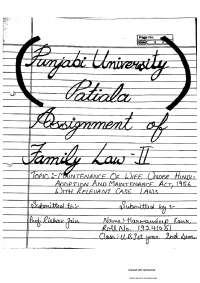 Page No.
Date
Punjabi University
Patiala
Assignment of
Family Law - II
TOPIC :- MAINTENANCE OF WIFE UNDER HINDU
ADOPTION AND MAINTENANCE ACT, 1956
WITH RELEVANT CASE LAWS
Submitted to :- Submitted by :-
Prof. Jain Name : Kaur
Roll No. 19241081
Class : LL.B 1st year 2nd Sem